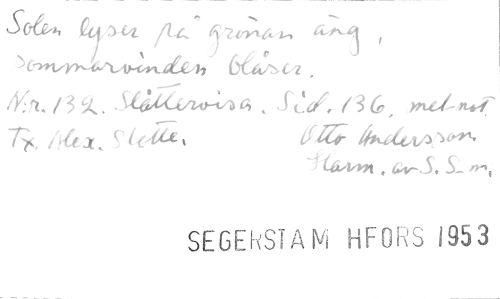 Solen lyser på grönan äng,
sommarvinden blåser.
N:r. 132. Slåttervisa. Sid. 136, mel-not.
Tx. Alex. Slotte. Otto Andersson.
Harm. av S. S-m.
SEGERSTAM HFORS 1953